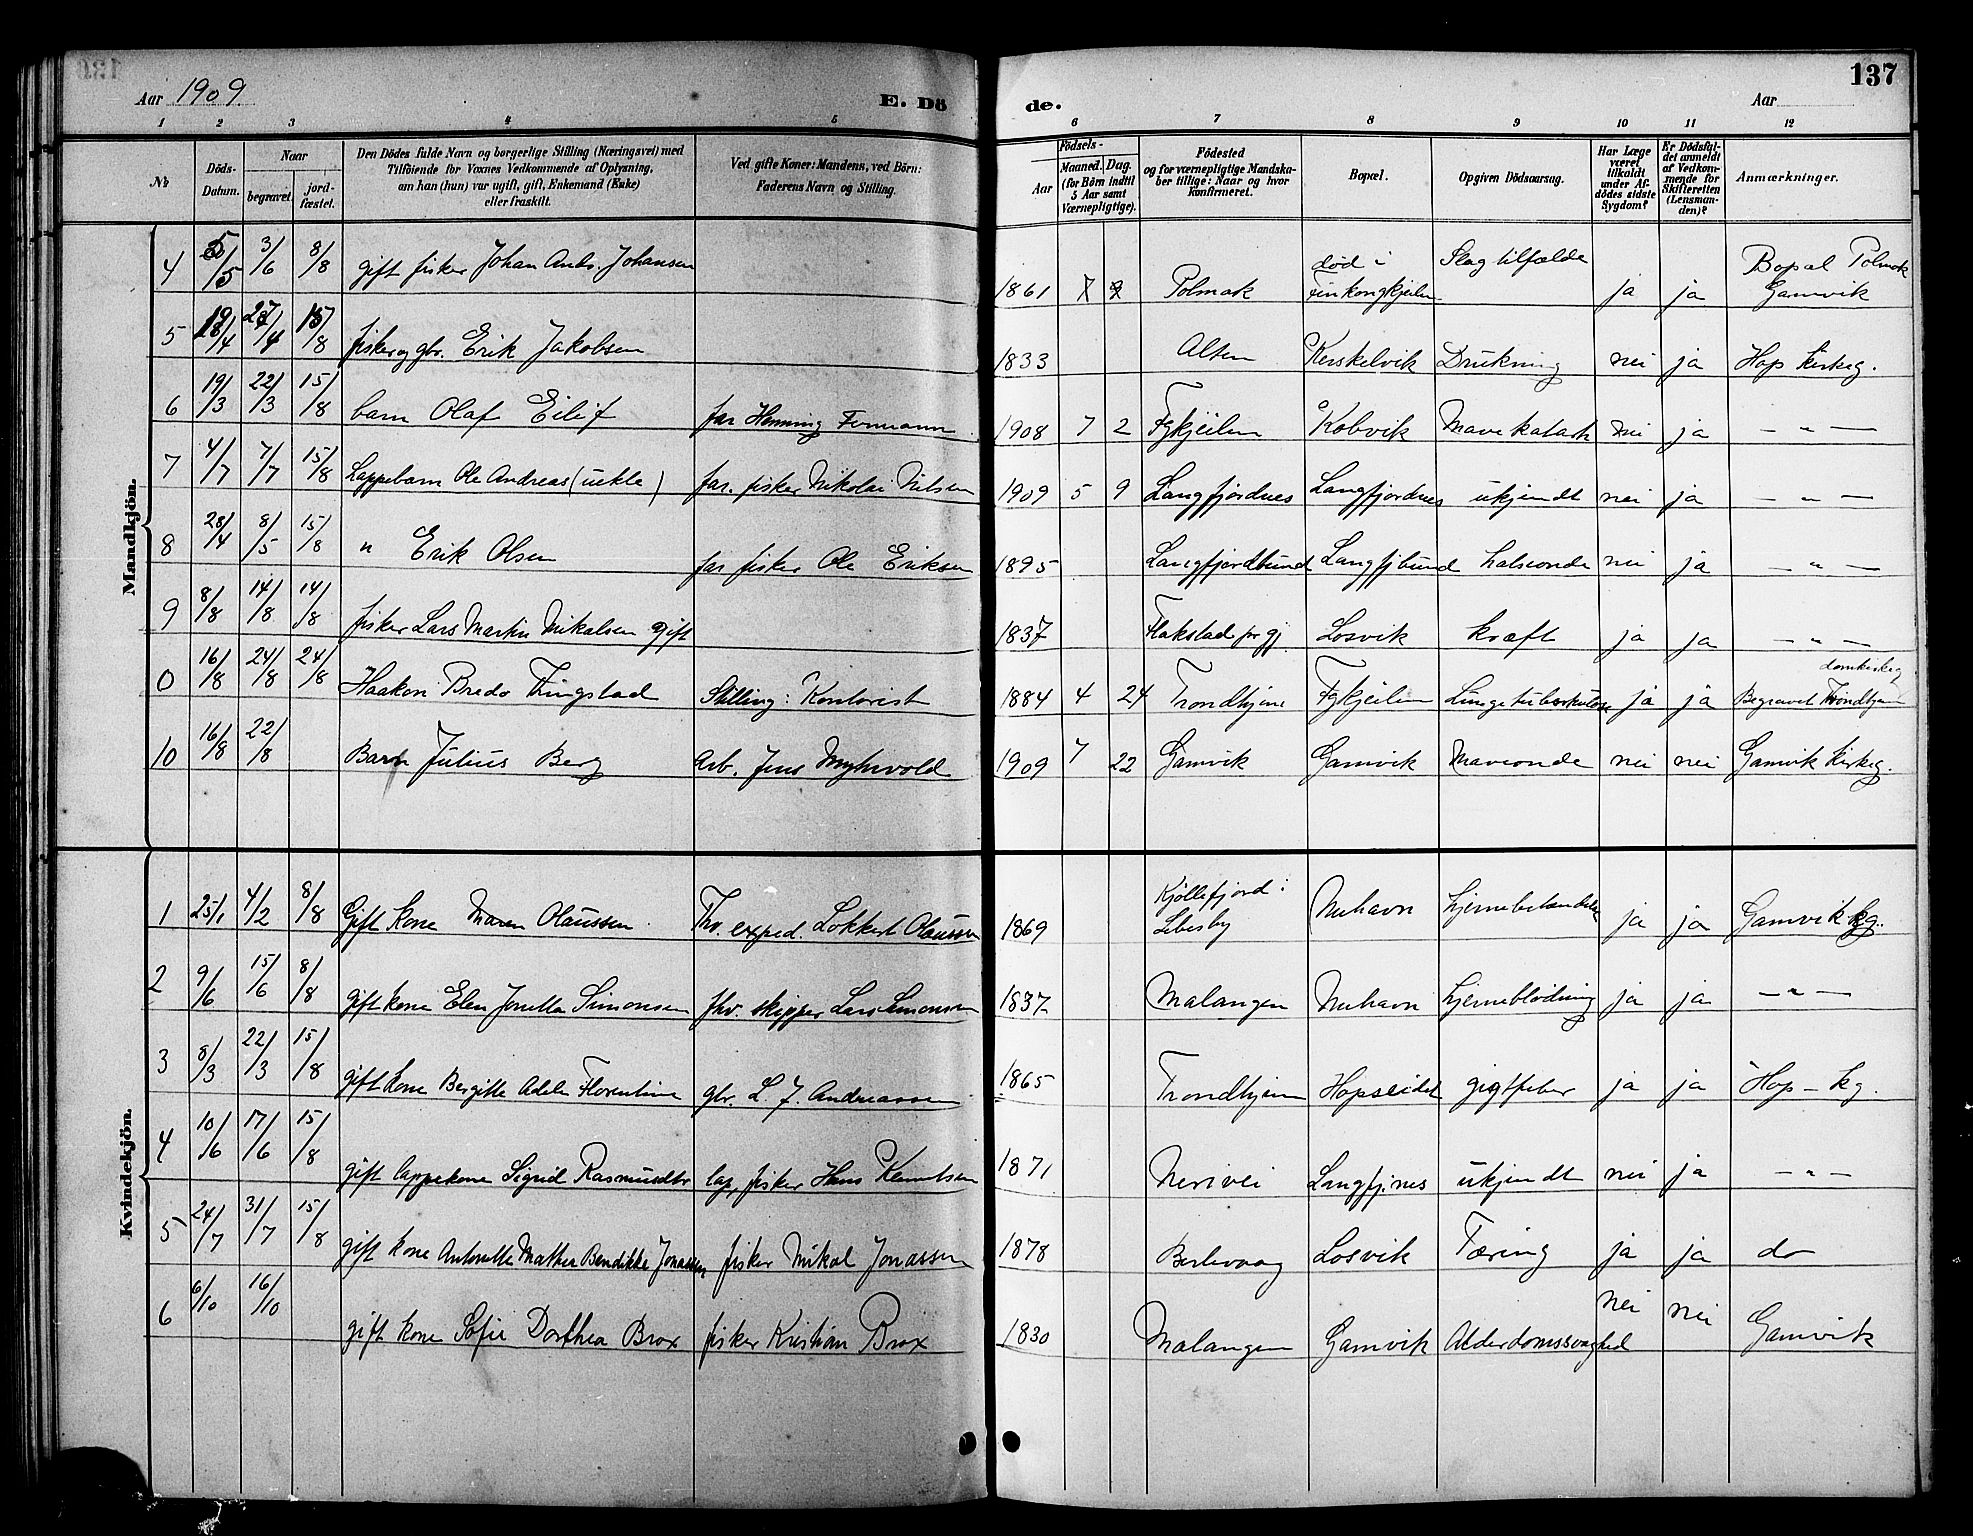 Aar 1909 E. Dö
de. Aar 137
1 2 3 4 5 6 7 8 9 10 11 12
№ Döds-Datum. Naar begravet. jord-fæstet. Den Dödes fulde Navn og borgerlige Stilling (Næringsvei) med Tilföiende for Voxnes Vedkommende af Oplysning, om han (hun) var ugift, gift, Enkemand (Enke) eller fraskilt. Ved gifte Koner: Mandens, ved Börn: Faderens Navn og Stilling. Födsels- Aar Maaned. Dag. (for Börn indtil 5 Aar samt Værnepligtige). Födested og for værnepligtige Mandskaber tillige: Naar og hvor konfirmeret. Bopæl. Opgiven Dödsaarsag. Har Læge været tilkaldt under Afdödes sidste Sygdom? Er Dödsfaldet anmeldt af Vedkommende for Skifteretten (Lensmanden)? Anmærkninger.
Mandkjön.
4 5/5 3/6 8/8 gift fisker Johan Anb. Johansen 1861 7 Polmak död i Finkongkjeilen Slagtilfælde ja ja Bopæl Polmak Gamvik
5 19/4 27/4 15/8 fisker og gbr. Erik Jakobsen 1833 Alten Kerskelvik Drukning nei ja Hop Kirkeg.
6 19/3 22/3 15/8 barn Olaf Eilif far Henning Formann 1908 7 2 Fgkjeilen Kobvik Mavekatarh nei ja — " —
7 4/7 7/7 15/8 Lappebarn Ole Andreas (uekte) far. fisker Nikolai Nilsen 1909 5 9 Langfjordnes Langfjordnes ukjendt nei ja — " —
8 28/4 8/5 15/8 " Erik Olsen far fisker Ole Eriksen 1895 Langfjordbund Langfjbund halsonde nei ja — " —
9 8/8 14/8 14/8 fisker Lars Martin Nikalsen gift 1837 Flakstad prgj Losvik kræft ja ja — " —
0 16/8 24/8 24/8 Haakon Bredo Tingstad Stilling: Kontorist 1884 4 24 Trondhjem Fgkjeilen Lungetuberkulose ja ja Begravet Trondhjem domkirkeg
10 16/8 22/8 Barn Julius Berg Arb. Jens Myhrvold 1909 7 22 Gamvik Gamvik Maveonde nei nei Gamvik Kirkeg.
Kvindekjön.
1 25/1 4/2 8/8 Gift kone Maren Olaussen Thv. exped. Lokkert Olaussen 1869 Kjöllefjord i Lebesby Mehavn hjernebetændelse ja ja Gamvik kg.
2 9/6 15/6 8/8 gift kone Elen Jonetta Simonsen fhv. skipper Lars Simonsen 1837 Malangen Mehavn hjerneblödning ja ja — " —
3 8/3 22/3 15/8 gift kone Bergitte Adele Florentine gbr. L. J. Andreassen 1865 Trondhjem Hopseidet gigtfeber ja ja Hop - kg.
4 10/6 17/6 15/8 gift lappekone Sigrid Rasmusdtr lap, fisker Hans Klemetsen 1871 Nerivei Langfjnes ukjendt nei ja — " —
5 24/7 31/7 15/8 gift kone Antonette Mathea Bendikke Jonassen fisker Mikal Jonassen 1878 Berlevaag Losvik Tæring ja ja do
6 6/10 16/10 gift kone Sofie Dorthea Brox fisker Kristian Brox 1830 Malangen Gamvik Alderdomssvaghed nei nei Gamvik